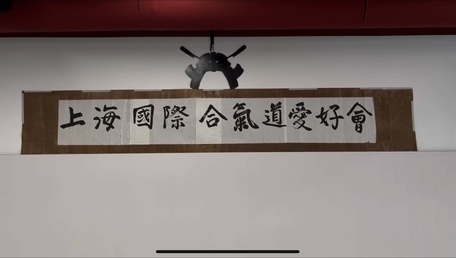 上海國際合氣道愛好會